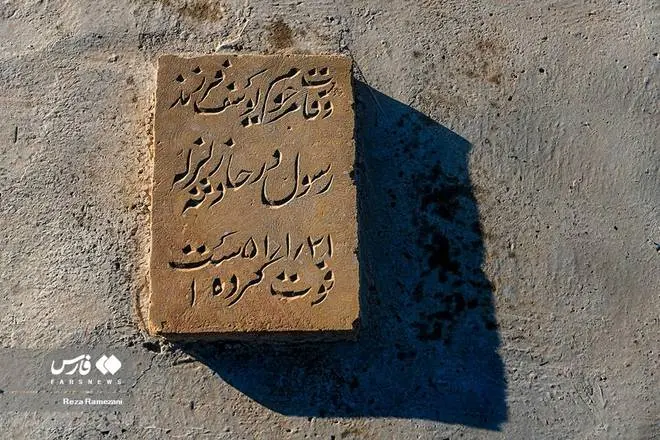 وفات مرحوم یوسف فرزند
رسول در حادثه زلزله
۵۱/۱/۲۱
فوت کرده
فارس
FARSNEWS
Reza Ramezani